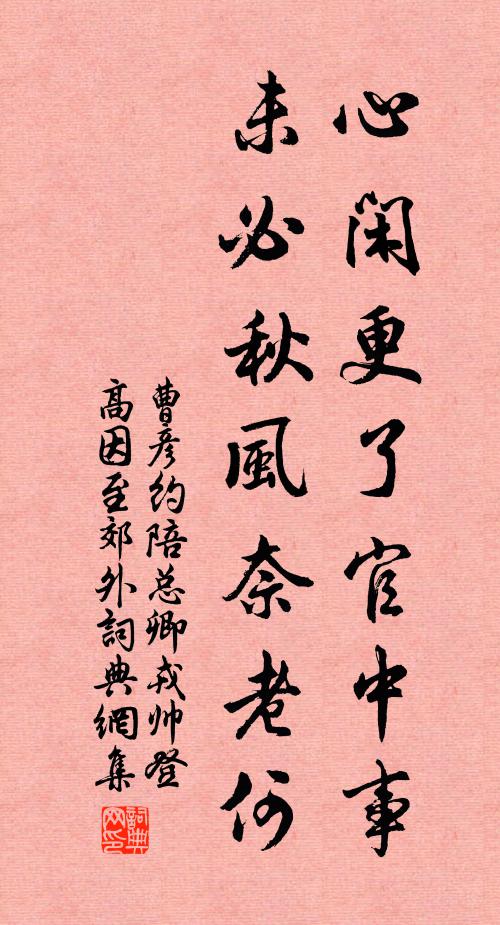 心闲更了官中事
未必秋風奈老何
曹彦約陪总卿戎帅登
高因至郊外詞典網集
詞典
网印